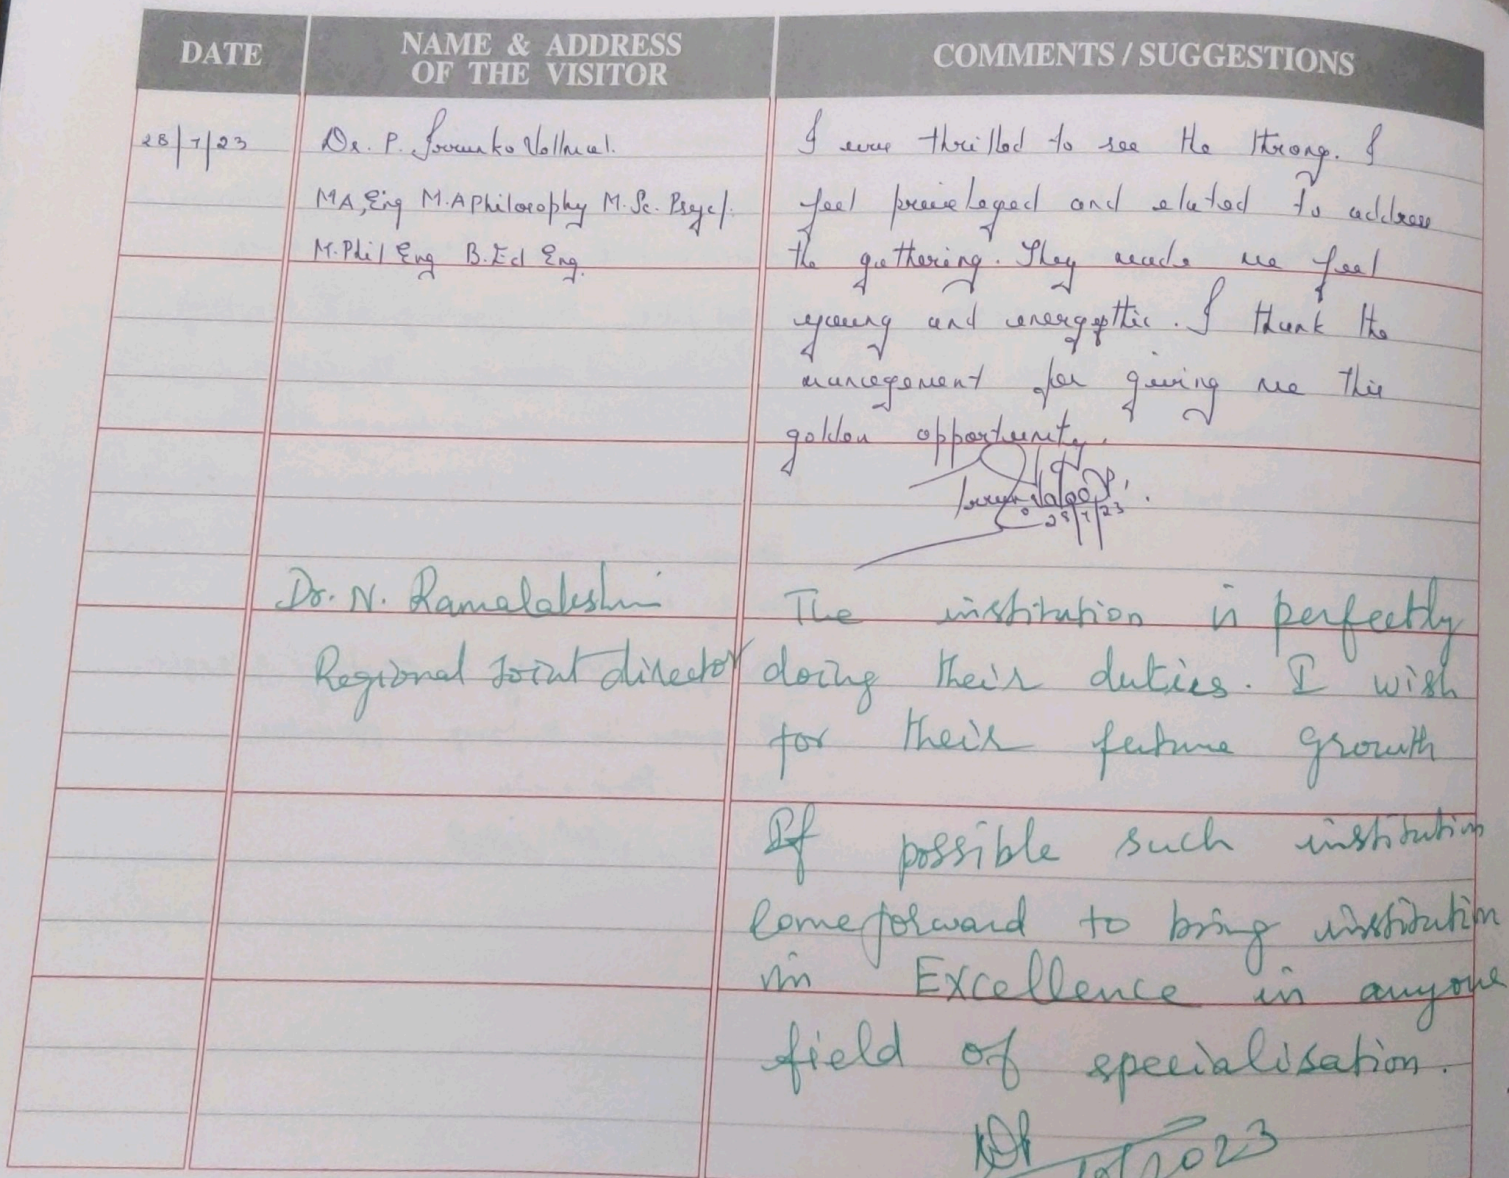 DATE
NAME & ADDRESS
OF THE VISITOR
COMMENTS / SUGGESTIONS
28/7/23
Dr. P.
MA, Eng M.A Philosophy M.Sc. Psyc/.
M.Phil Eng B.Ed Eng.
I was thrilled to see the throng. I
feel privileged and elated to address
the gathering. They made me feel
young and energetic. I thank the
management for giving me this
golden opportunity.
28/7/23
Dr. N. Ramalakshmi
Regional Joint director
The institution is perfectly
doing their duties. I wish
for their future growth
If possible such institution
Come forward to bring institution
in Excellence in anyone
field of specialisation.
2023